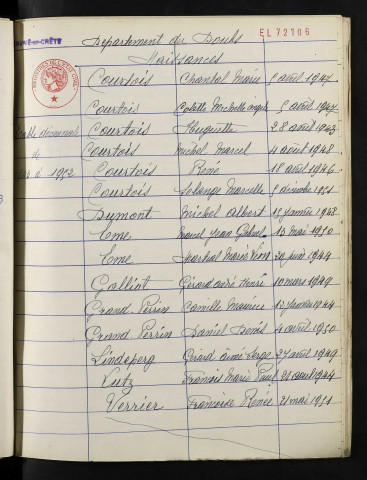 EL 72106
Département du Doubs
Naissances
Courtois Chantal Marie 5 avril 1947
Courtois Colette Michelle 5 avril 1947
Courtois Huguette 28 août 1943
Courtois Michel Marcel 4 août 1948
Courtois René 18 avril 1946
Courtois Solange Marcelle décembre 1951
Dumont Michel Albert janvier 1948
Eme Marcel Jean Gabriel 13 mai 1950
Eme Martial Marie juin 1944
Galliot Gérard André Henri 10 mars 1949
Grand-Perrin Camille Maurice janvier 1944
Grand Perrin Daniel Denis 4 avril 1950
Lindeperg Gérard Aimé Serge 27 avril 1949
Vutz François Marie Paul 21 août 1944
Verrier Françoise Renée 21 mai 1951